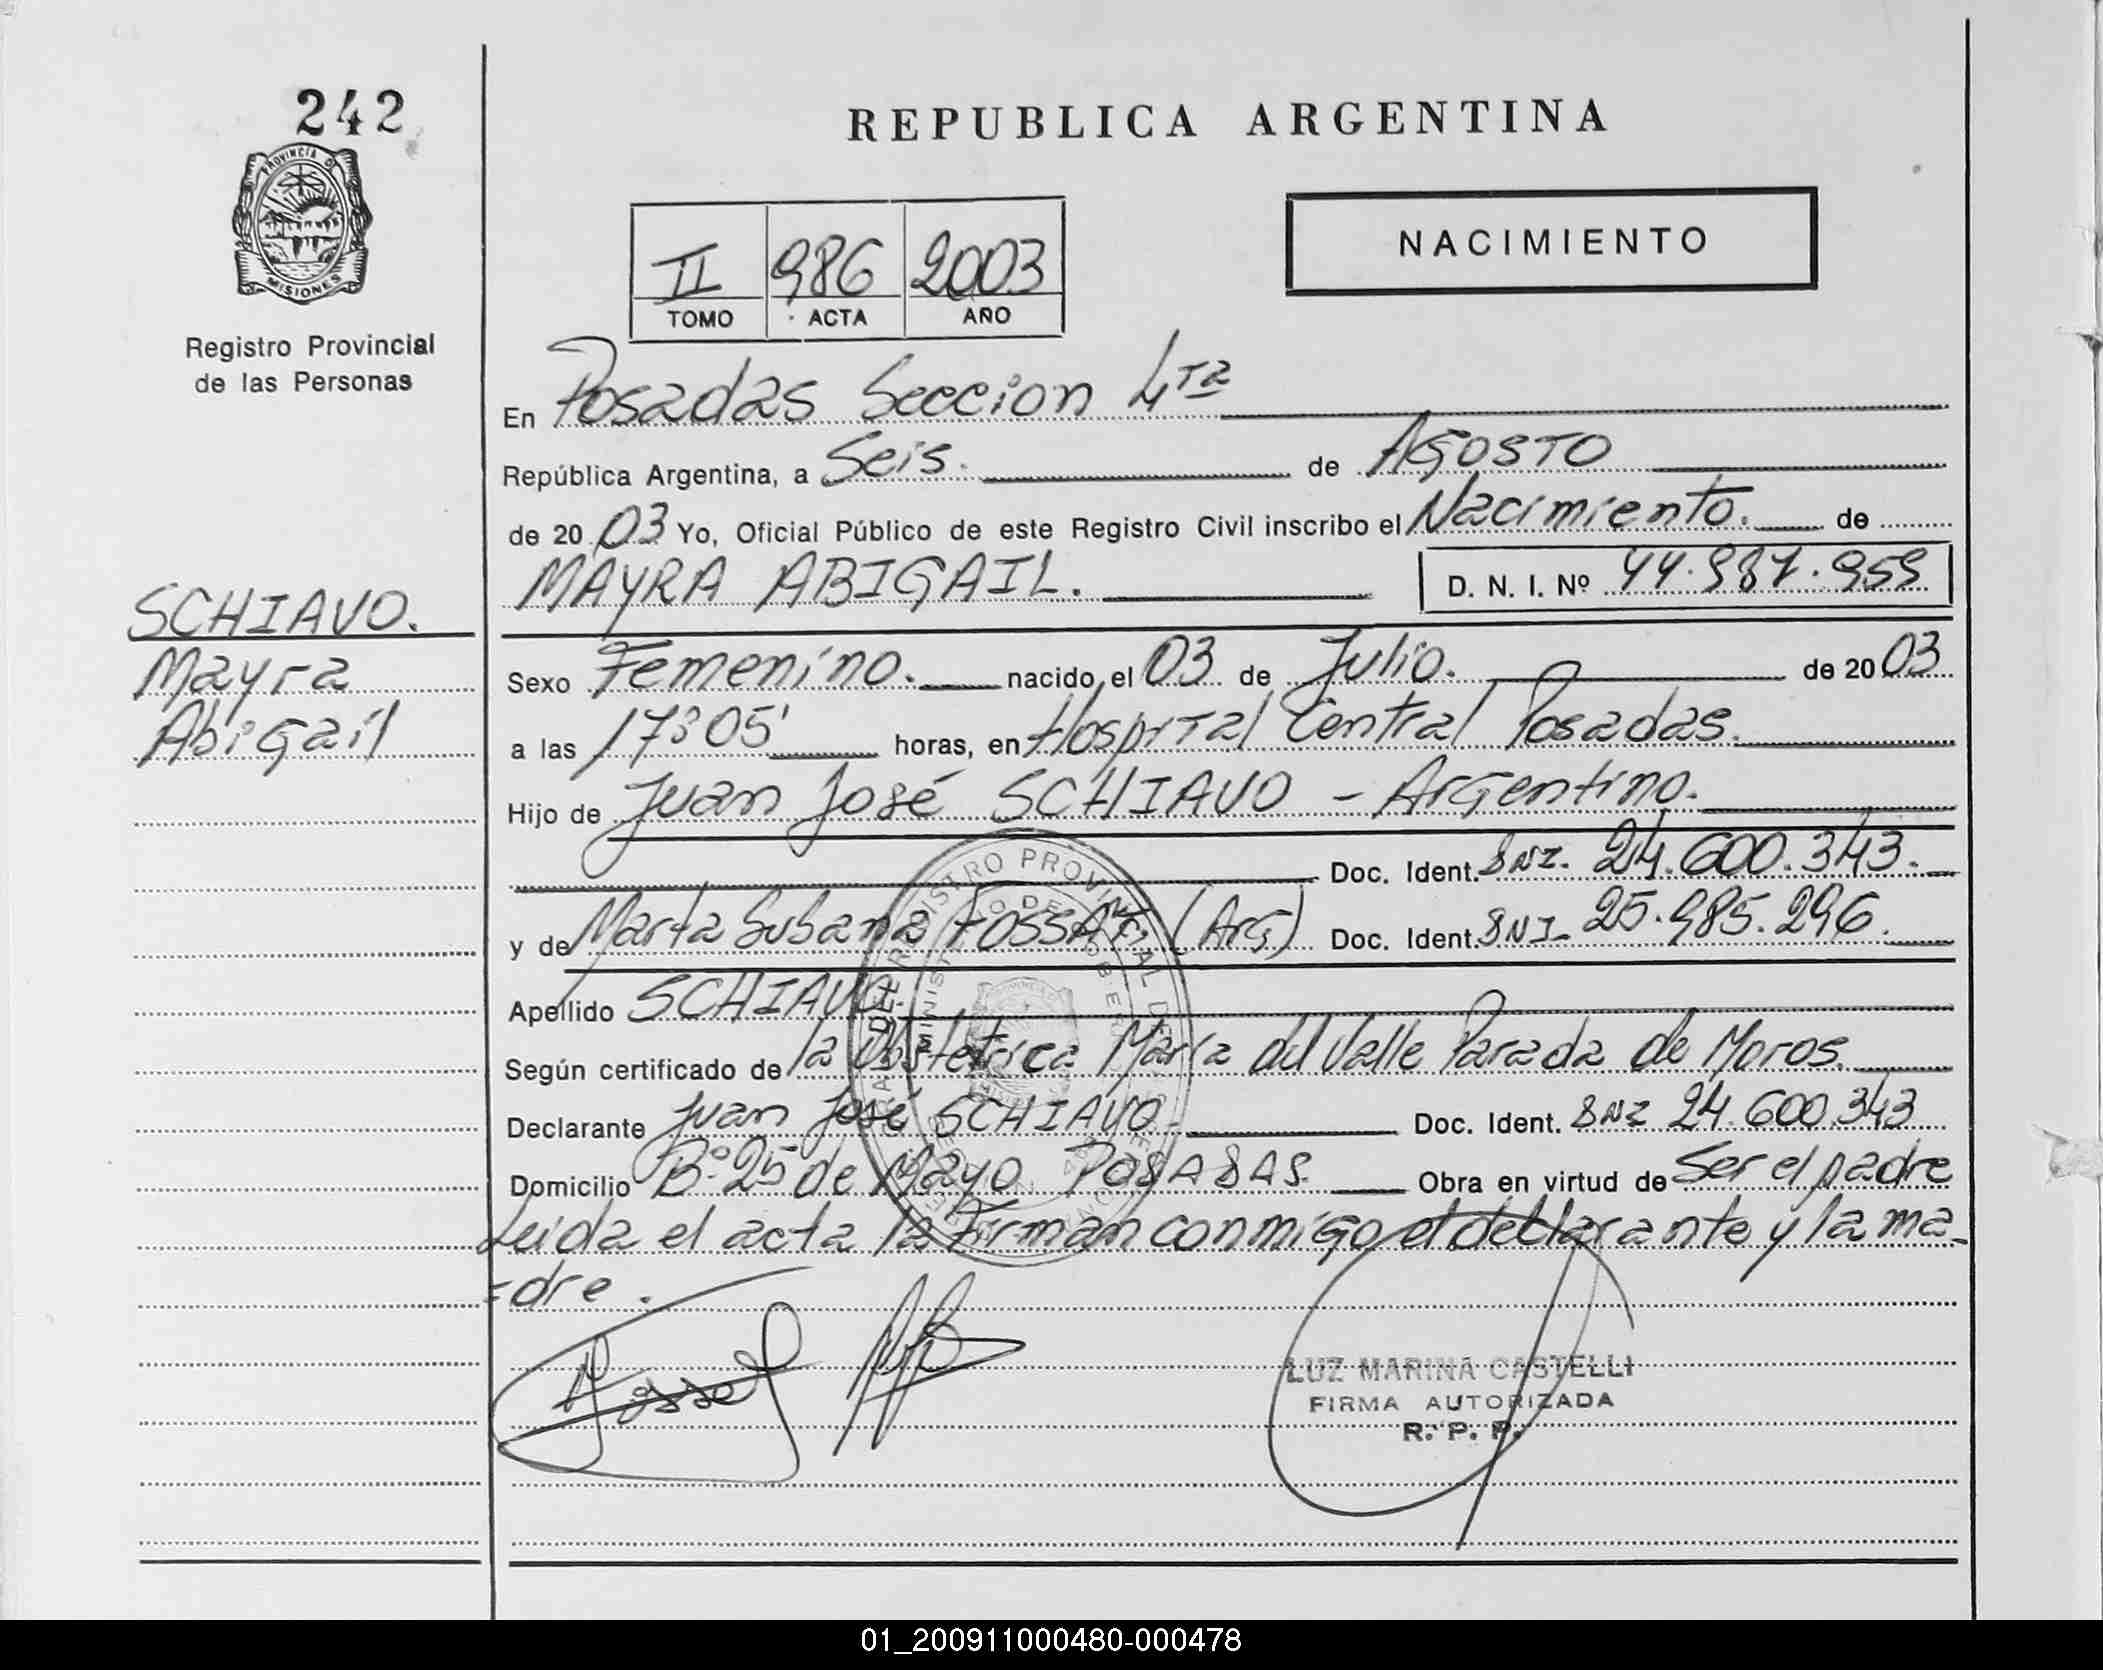 242
REPUBLICA ARGENTINA
PROVINCIA DE
MISIONES
Registro Provincial
de las Personas
II 986 2003
TOMO ACTA AÑO
NACIMIENTO
En Posadas Seccion 4ta
República Argentina, a Seis. de AGOSTO
de 20 03 Yo, Oficial Público de este Registro Civil inscribo el Nacimiento. de
MAYRA ABIGAIL. D. N. I. Nº 44.987.959
SCHIAVO.
Mayra
Abigail
Sexo Femenino. nacido el 03 de Julio. de 20 03
a las 17:05' horas, en Hospital Central Posadas.
Hijo de Juan José SCHIAVO - Argentino.
Doc. Ident. DNI. 24.600.343.
y de Marta Susana (Arg) Doc. Ident. DNI. 25.985.296.
Apellido SCHIAVO.
Según certificado de la Obstetrica María del Valle Parada de Moros.
Declarante Juan José SCHIAVO Doc. Ident. DNI 24.600.343
Domicilio Bº 25 de Mayo POSADAS. Obra en virtud de Ser el padre
Leida el acta la Firman conmigo el declarante y la ma-
=dre.
LUZ MARINA CASTELLI
FIRMA AUTORIZADA
R. P. P.
01_200911000480-000478